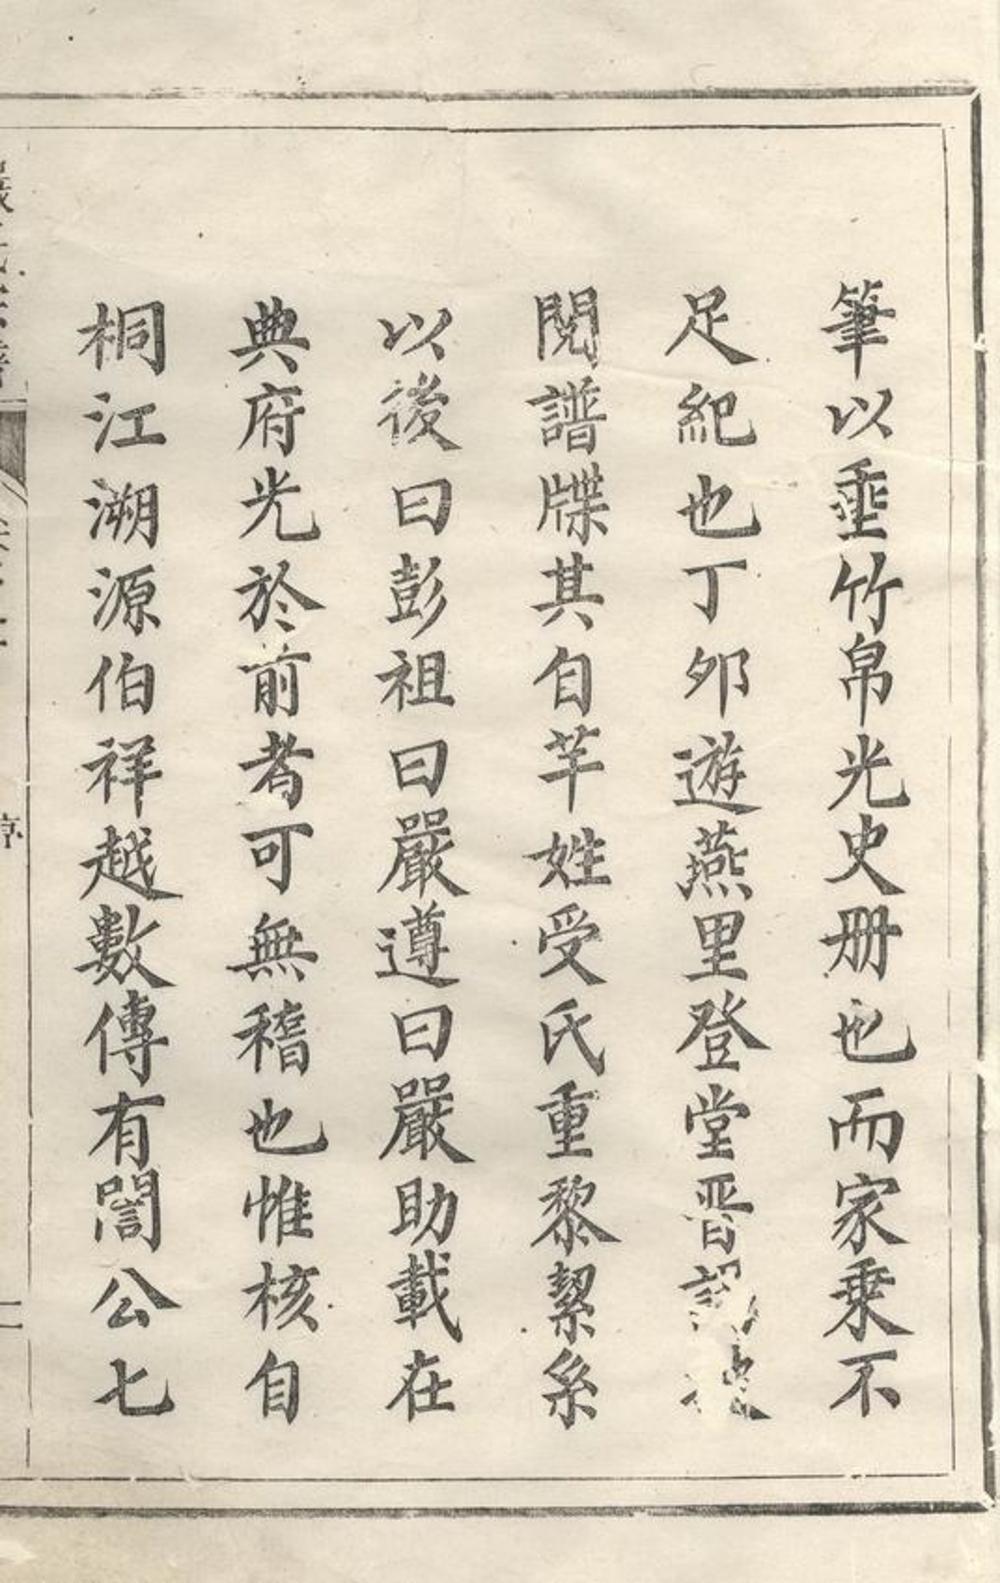 筆以垂竹帛光史册也而家乗不
足紀也丁夘遊燕里登堂晋謁
閱譜牒其自芊姓受氏重黎絜糸
以後曰彭祖曰嚴遵曰嚴助載在
典府光於前者可無稽也惟核自
桐江溯源伯祥越數傳有誾公七
序